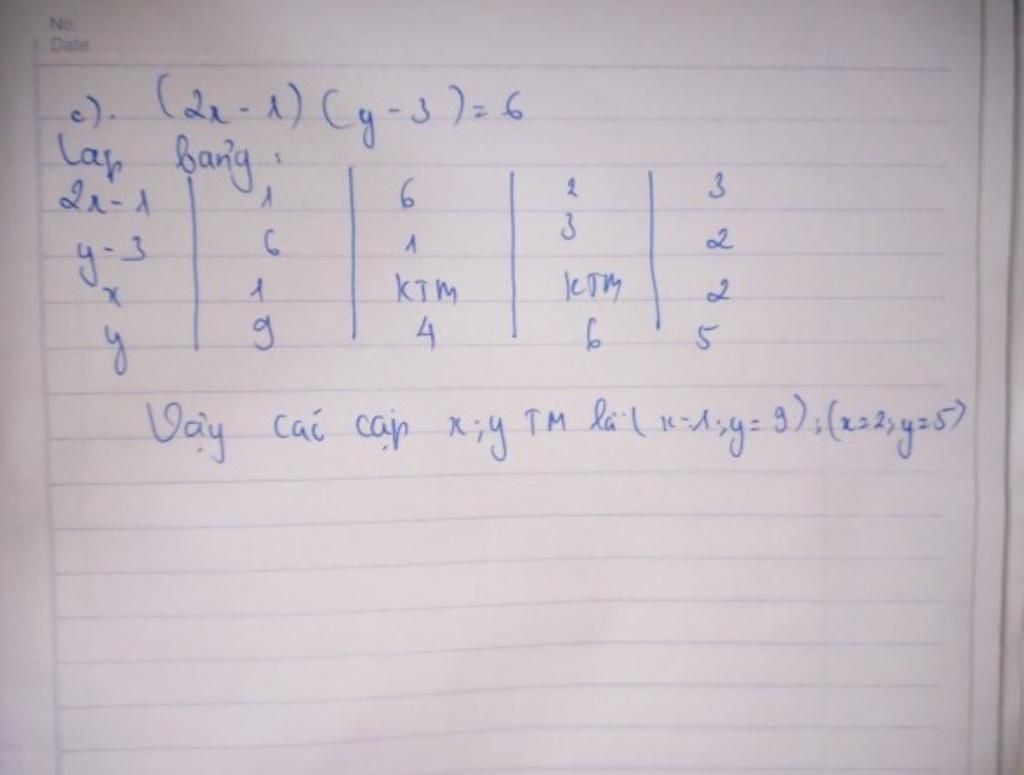 No.
Date
c). (2x-1)(y-3)=6
Lap bảng:
2x-1 | 1 | 6 | 2 | 3
y-3 | 6 | 1 | 3 | 2
x | 1 | KTM | KTM | 2
y | 9 | 4 | 6 | 5
Vậy các cặp x;y TM là (x=1;y=9);(x=2;y=5)